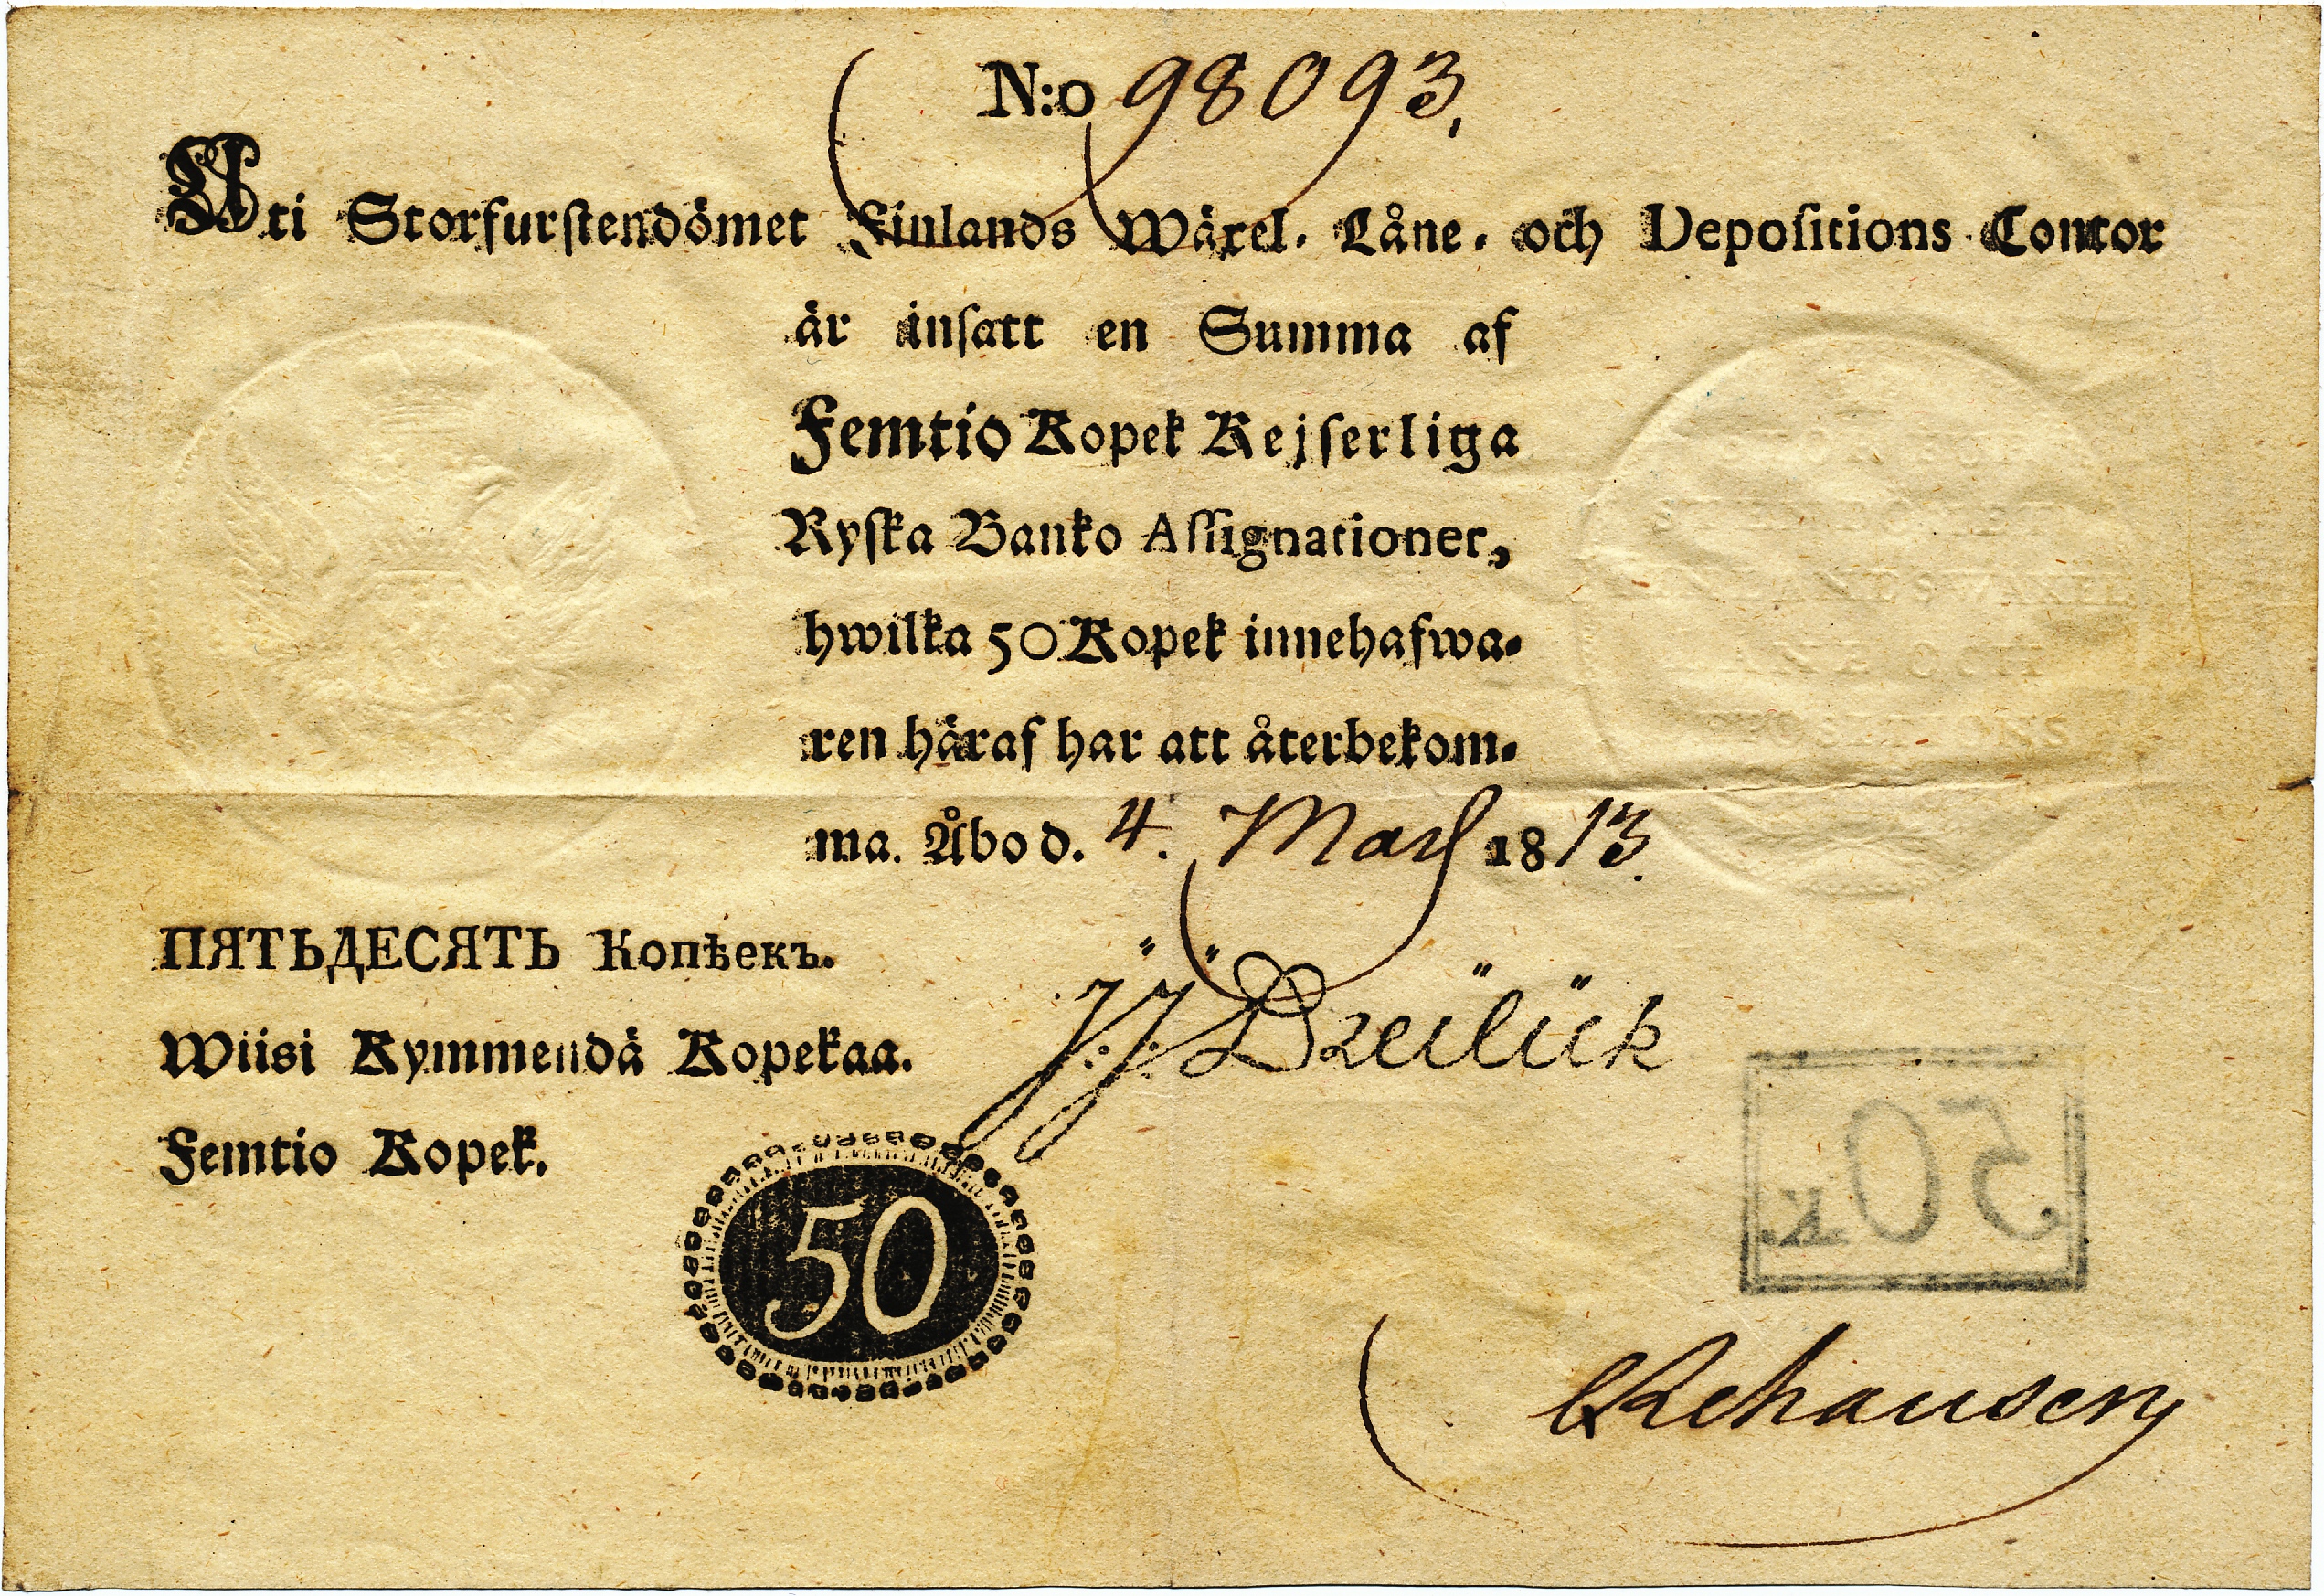 N:o 98093.
Uti Storfurstendömet Finlands Wäxel- Låne- och Depositions Contor
är insatt en Summa af
Femtio Kopek Kejserliga
Ryska Banko Assignationer,
hwilka 50 Kopek innehafwa-
ren häraf har att återbekom-
ma. Åbo d. 4. Mars 1813.
ПЯТЬДЕСЯТЬ Копѣекъ.
Wiisi Kymmendä Kopekaa.
Femtio Kopek.
J:J: Dreilick
50
50 K.
CRehausen